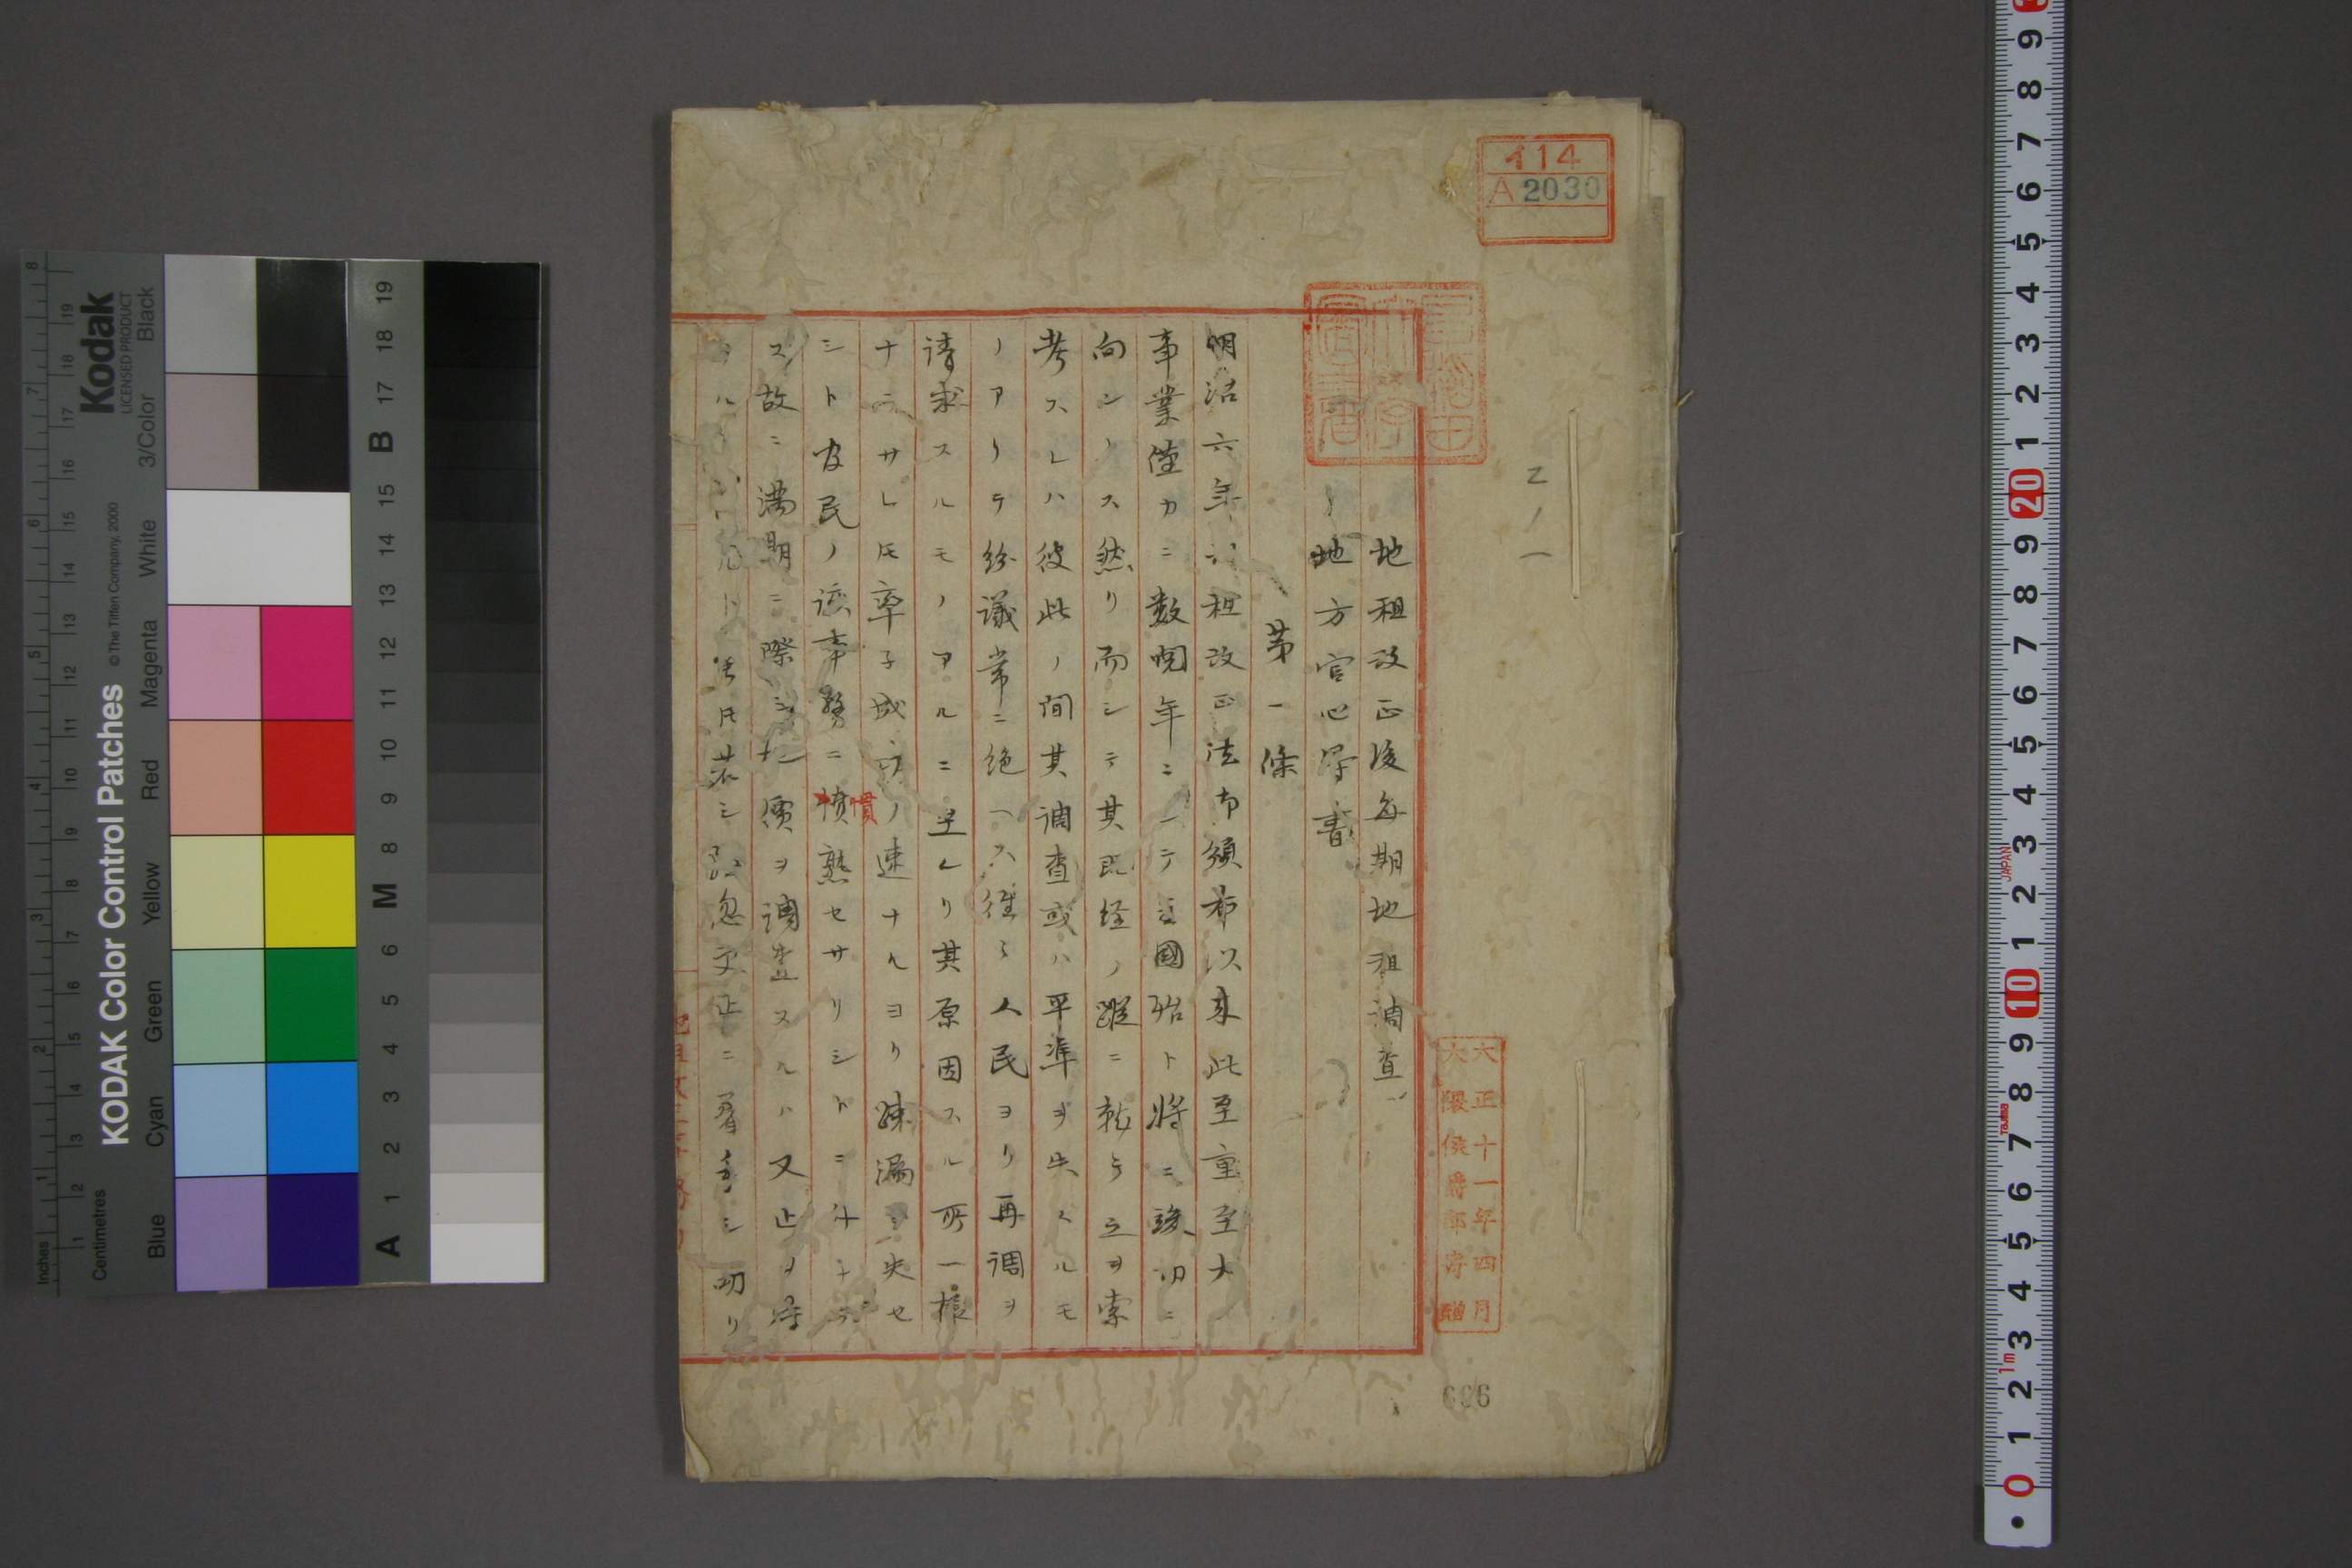 イ14
A 2030
早稲田
大学
図書
乙ノ一
地租改正後毎期地租調査
地方官心得書
第一條
明治六年地租改正法御頒布以来此至重至大ノ
事業僅カニ数閲年ニシテ全國殆ト将ニ竣功ニ
向ントス然リ而シテ其既経ノ蹤ニ就テ之ヲ索
考スレハ彼此ノ間其調査或ハ平準ヲ失スルモ
ノアリテ紛議常ニ絶ヘス往々人民ヨリ再調ヲ
請求スルモノアルニ至レリ其原因スル所一様
ナラサレ𪜈率子成功ノ速ナルヨリ疎漏ニ失セ
シト官民ノ該事務ニ慣熟セサリシトニ外ナラ
慣
ス故ニ満期ニ際シ地價ヲ調査スルハ又止ヲ得
若シ忽 更正ニ着手シ
大正十一年四月
大隈侯爵邸寄贈
696
Kodak
LICENSED PRODUCT
KODAK Color Control Patches
© The Tiffen Company, 2000
Inches
Centimetres
Blue
Cyan
Green
Yellow
Red
Magenta
White
3/Color
Black
A 1 2 3 4 5 6 M 8 9 10 11 12 13 14 15 B 17 18 19
JAPAN
TAJIMA
1m
0 1 2 3 4 5 6 7 8 9 10 1 2 3 4 5 6 7 8 9 20 1 2 3 4 5 6 7 8 9